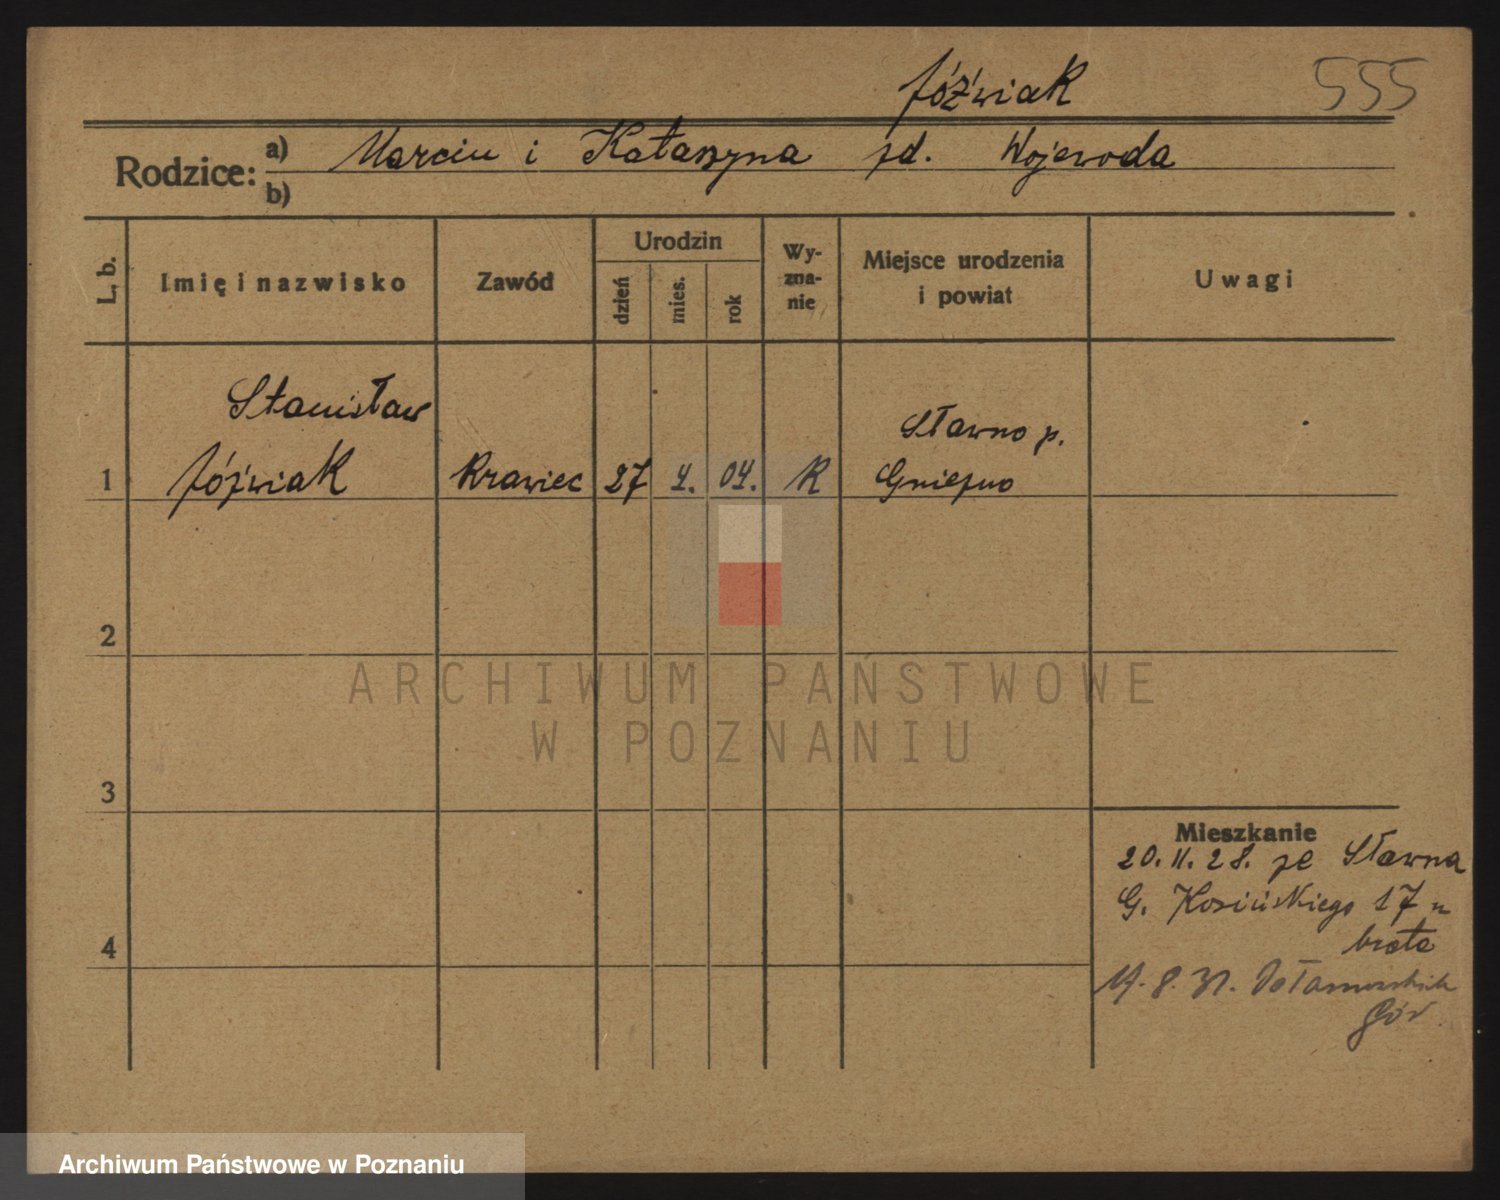 Jóźwiak 555
Rodzice: a) Marcin i Katarzyna zd. Wojewoda
b)
L. b. Imię i nazwisko Zawód Urodzin dzień mies. rok Wy-zna-nie Miejsce urodzenia i powiat Uwagi
Stanisław Sławno p.
1 Jóźwiak Krawiec 27 4. 04. K Gniezno
2
ARCHIWUM PAŃSTWOWE
W POZNANIU
3
Mieszkanie
20. 11. 28. ze Sławna
G. Kosińskiego 17 u
brata
4
19. 8. 31.
Gór
Archiwum Państwowe w Poznaniu